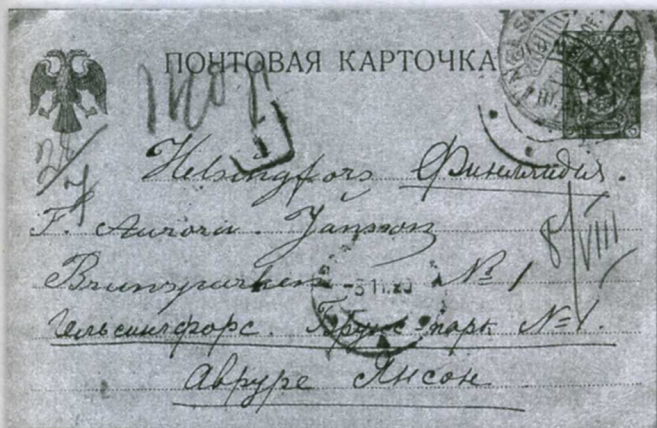 ПОЧТОВАЯ КАРТОЧКА
Helsingfors Финляндия.
F. Aurora Jansson
Brunsparken № 1
8/VIII
-3 11.20
Гельсингфорс. Брунс-парк № 1.
Авруре Янсон